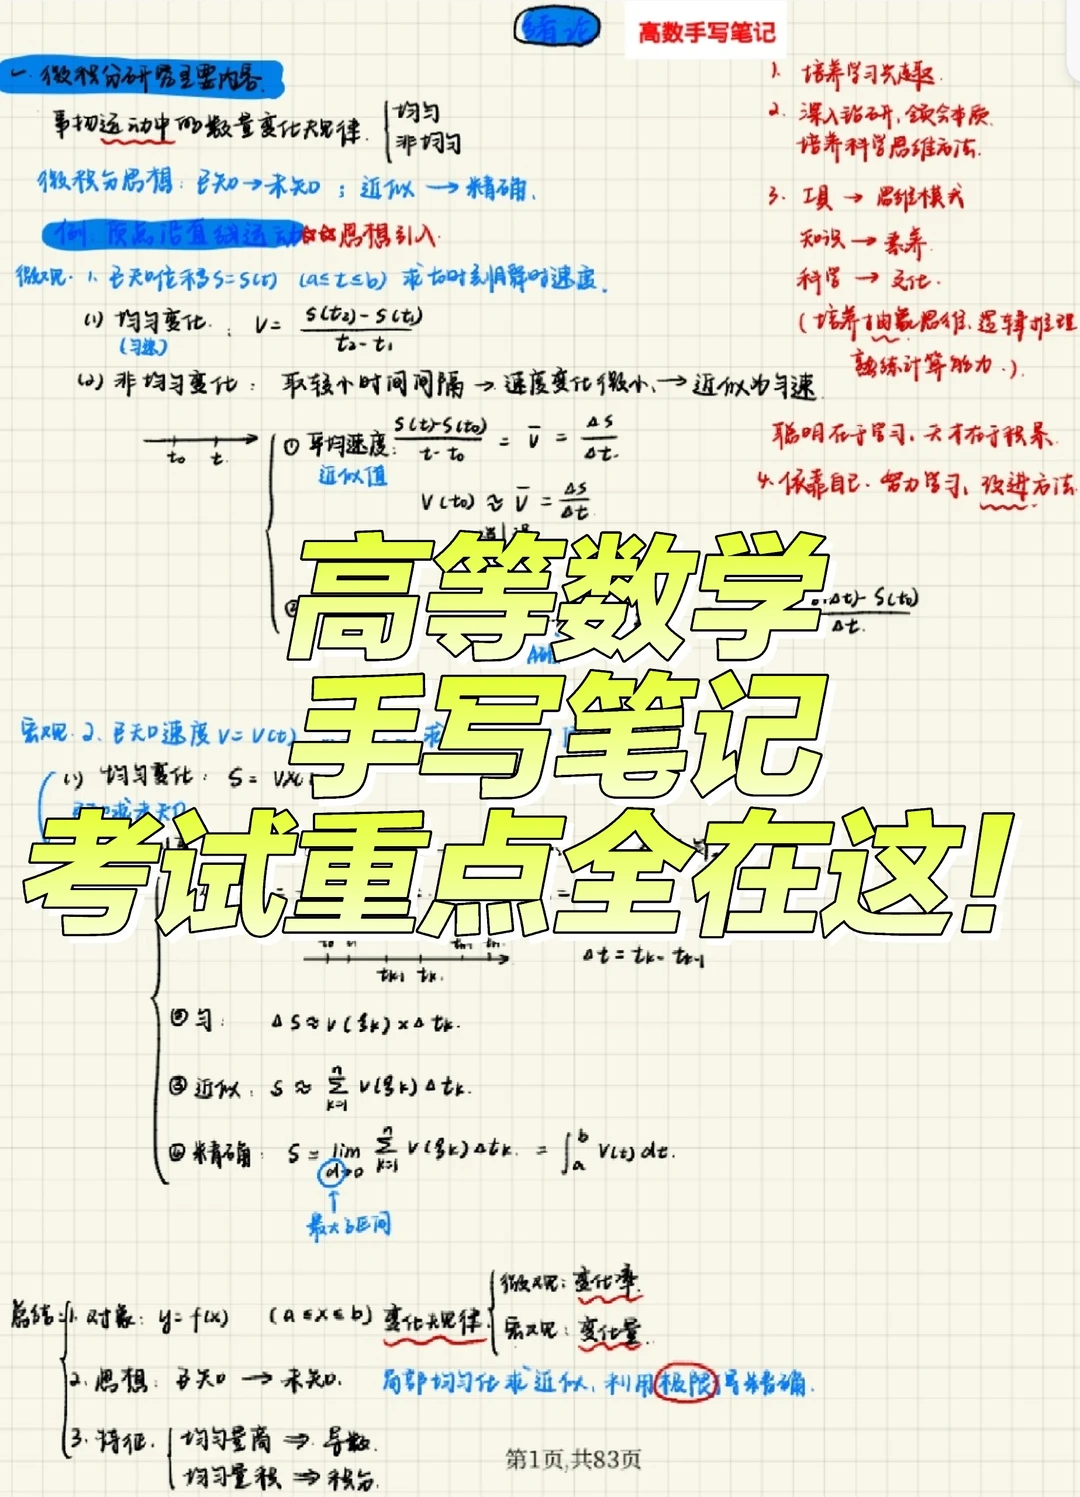 绪论
高数手写笔记
一. 微积分研究主要内容.
事物运动中的数量变化规律. { 均匀
非均匀
微积分思想: 已知→未知; 近似→精确.
例. 质点沿直线运动 ☆☆思想引入.
微观. 1. 已知位移S=S(t) (a≤t≤b) 求t0时刻瞬时速度.
(1) 均匀变化: V= (S(t2)-S(t1))/(t2-t1)
(匀速)
(2) 非均匀变化: 取较小时间间隔→速度变化微小→近似为匀速
t0 t
① 平均速度: (S(t)-S(t0))/(t-t0) = V̄ = ΔS/Δt.
近似值
V(t0) ≈ V̄ = ΔS/Δt
②
Δt)-S(t0)
Δt.
1. 培养学习兴趣.
2. 深入钻研, 领会本质.
培养科学思维方法.
3. 工具 → 思维模式
知识 → 素养.
科学 → 文化.
(培养抽象思维、逻辑推理
熟练计算能力.)
聪明在于学习, 天才在于积累.
4. 依靠自己. 努力学习, 改进方法.
高等数学
手写笔记
考试重点全在这!
宏观. 2. 已知速度V=V(t) 求
(1) 均匀变化: S=V×
tk-1 tk.
Δt=tk-tk-1
② 匀: ΔS≈V(ξk)×Δtk.
③ 近似: S≈ n∑k=1 V(ξk)Δtk.
④ 精确: S= lim d→0 n∑k=1 V(ξk)Δtk. = ∫ab V(t)dt.
↑
最大区间
总结: 1. 对象: y=f(x) (a≤x≤b) 变化规律 { 微观: 变化率.
宏观: 变化量.
2. 思想: 已知→未知. 局部均匀化求近似, 利用极限得精确.
3. 特征. { 均匀量商 ⇒ 导数.
均匀量积 ⇒ 积分.
第1页,共83页